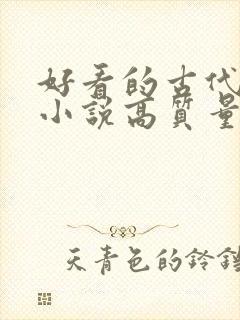 好看的古代
小說高質量
天青色的鈴鐺